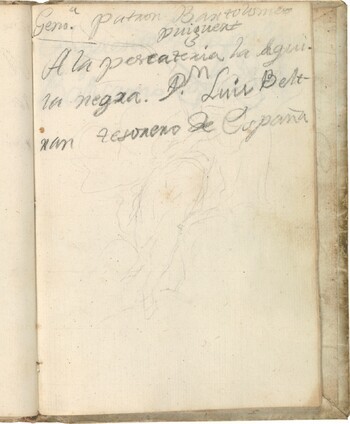 Genᵃ. patron Bartolomeo
puigvert
A la pescateria la Agui-
la negra. D.ⁿ Luis Belt-
ran tesorero de España